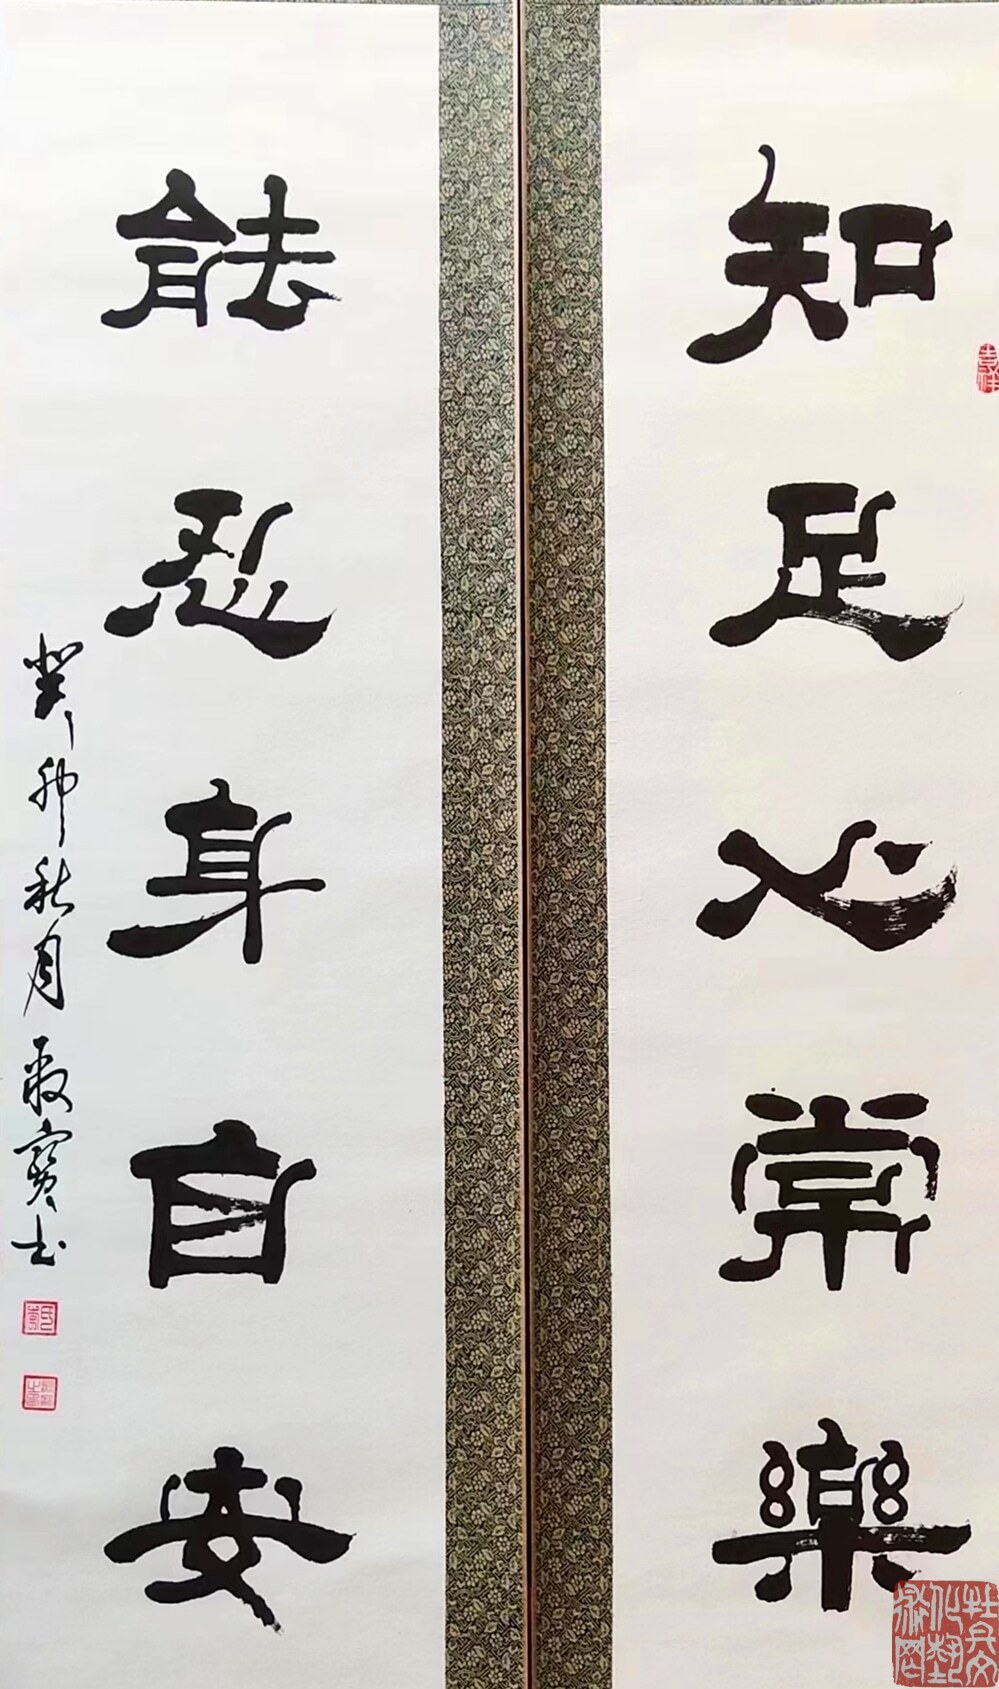 知足心常樂
能忍身自安
癸卯秋月敬寶书